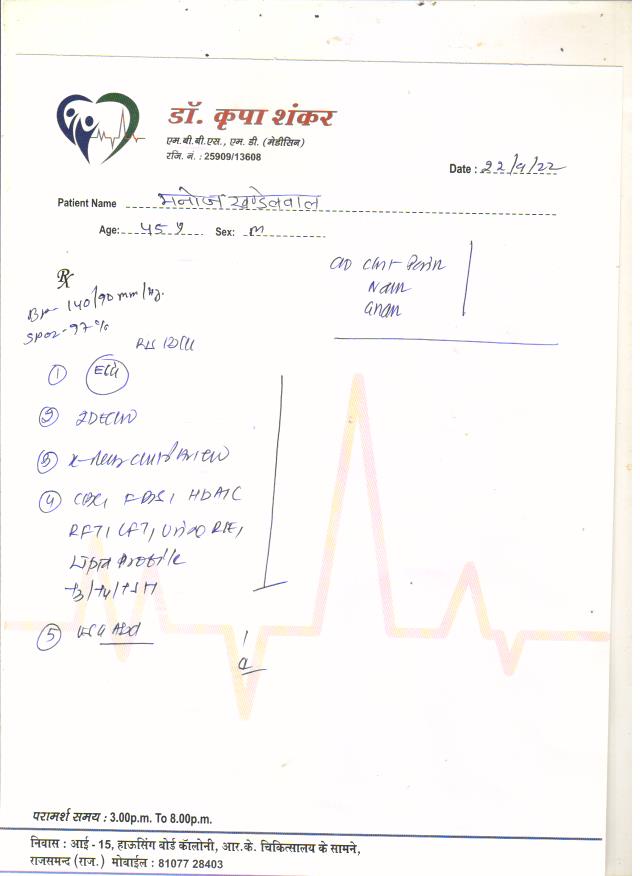 डॉ. कृपा शंकर
एम.बी.बी.एस., एम. डी. (मेडीसिन)
रजि. नं. : 25909/13608
Date : 22/9/22
Patient Name मनोज खण्डेलवाल
Age: 45 y Sex: m
Pain
Rx
BP- 140/90 mm/Hg.
SPO2-97%
① ECG
② 2DECHO
③ X-Ray
④ CBC, FBS, HbA1C
RFT, LFT, Urine R/E,
Lipid Profile
T3/T4/TSH
⑤ USG Abd
परामर्श समय : 3.00p.m. To 8.00p.m.
निवास : आई - 15, हाऊसिंग बोर्ड कॉलोनी, आर.के. चिकित्सालय के सामने,
राजसमन्द (राज.) मोबाईल : 81077 28403